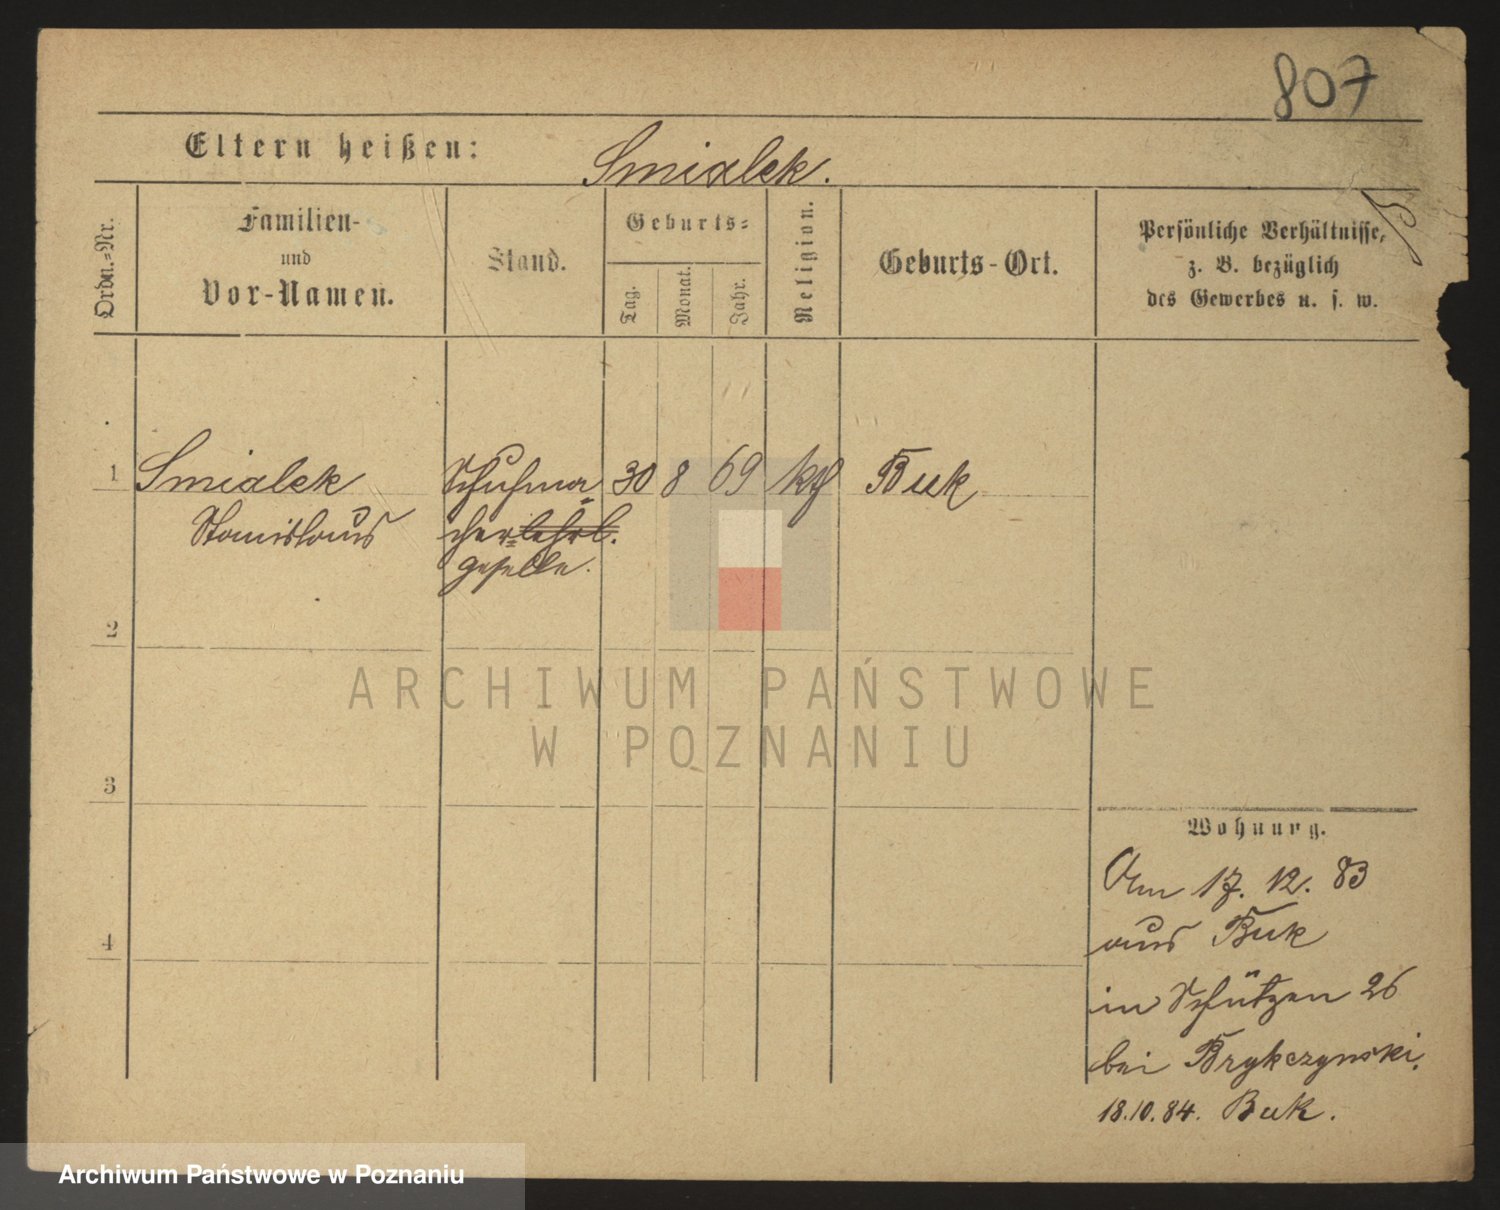 807
Eltern heißen: Smialek.
Ordn.=Nr.
Familien-
und
Vor-Namen.
Stand.
Geburts=
Tag.
Monat.
Jahr.
Religion.
Geburts-Ort.
Persönliche Verhältnisse,
z. B. bezüglich
des Gewerbes u. s. w.
1 Smialek Schuhma= 30 8 69 kth Buk
Stanislaus cher=lehrl.
geselle.
2
3
4
Wohnung.
Am 17. 12. 83
aus Buk
in Schützen 26
bei Brykczynski.
18.10.84. Buk.
ARCHIWUM PAŃSTWOWE
W POZNANIU
Archiwum Państwowe w Poznaniu